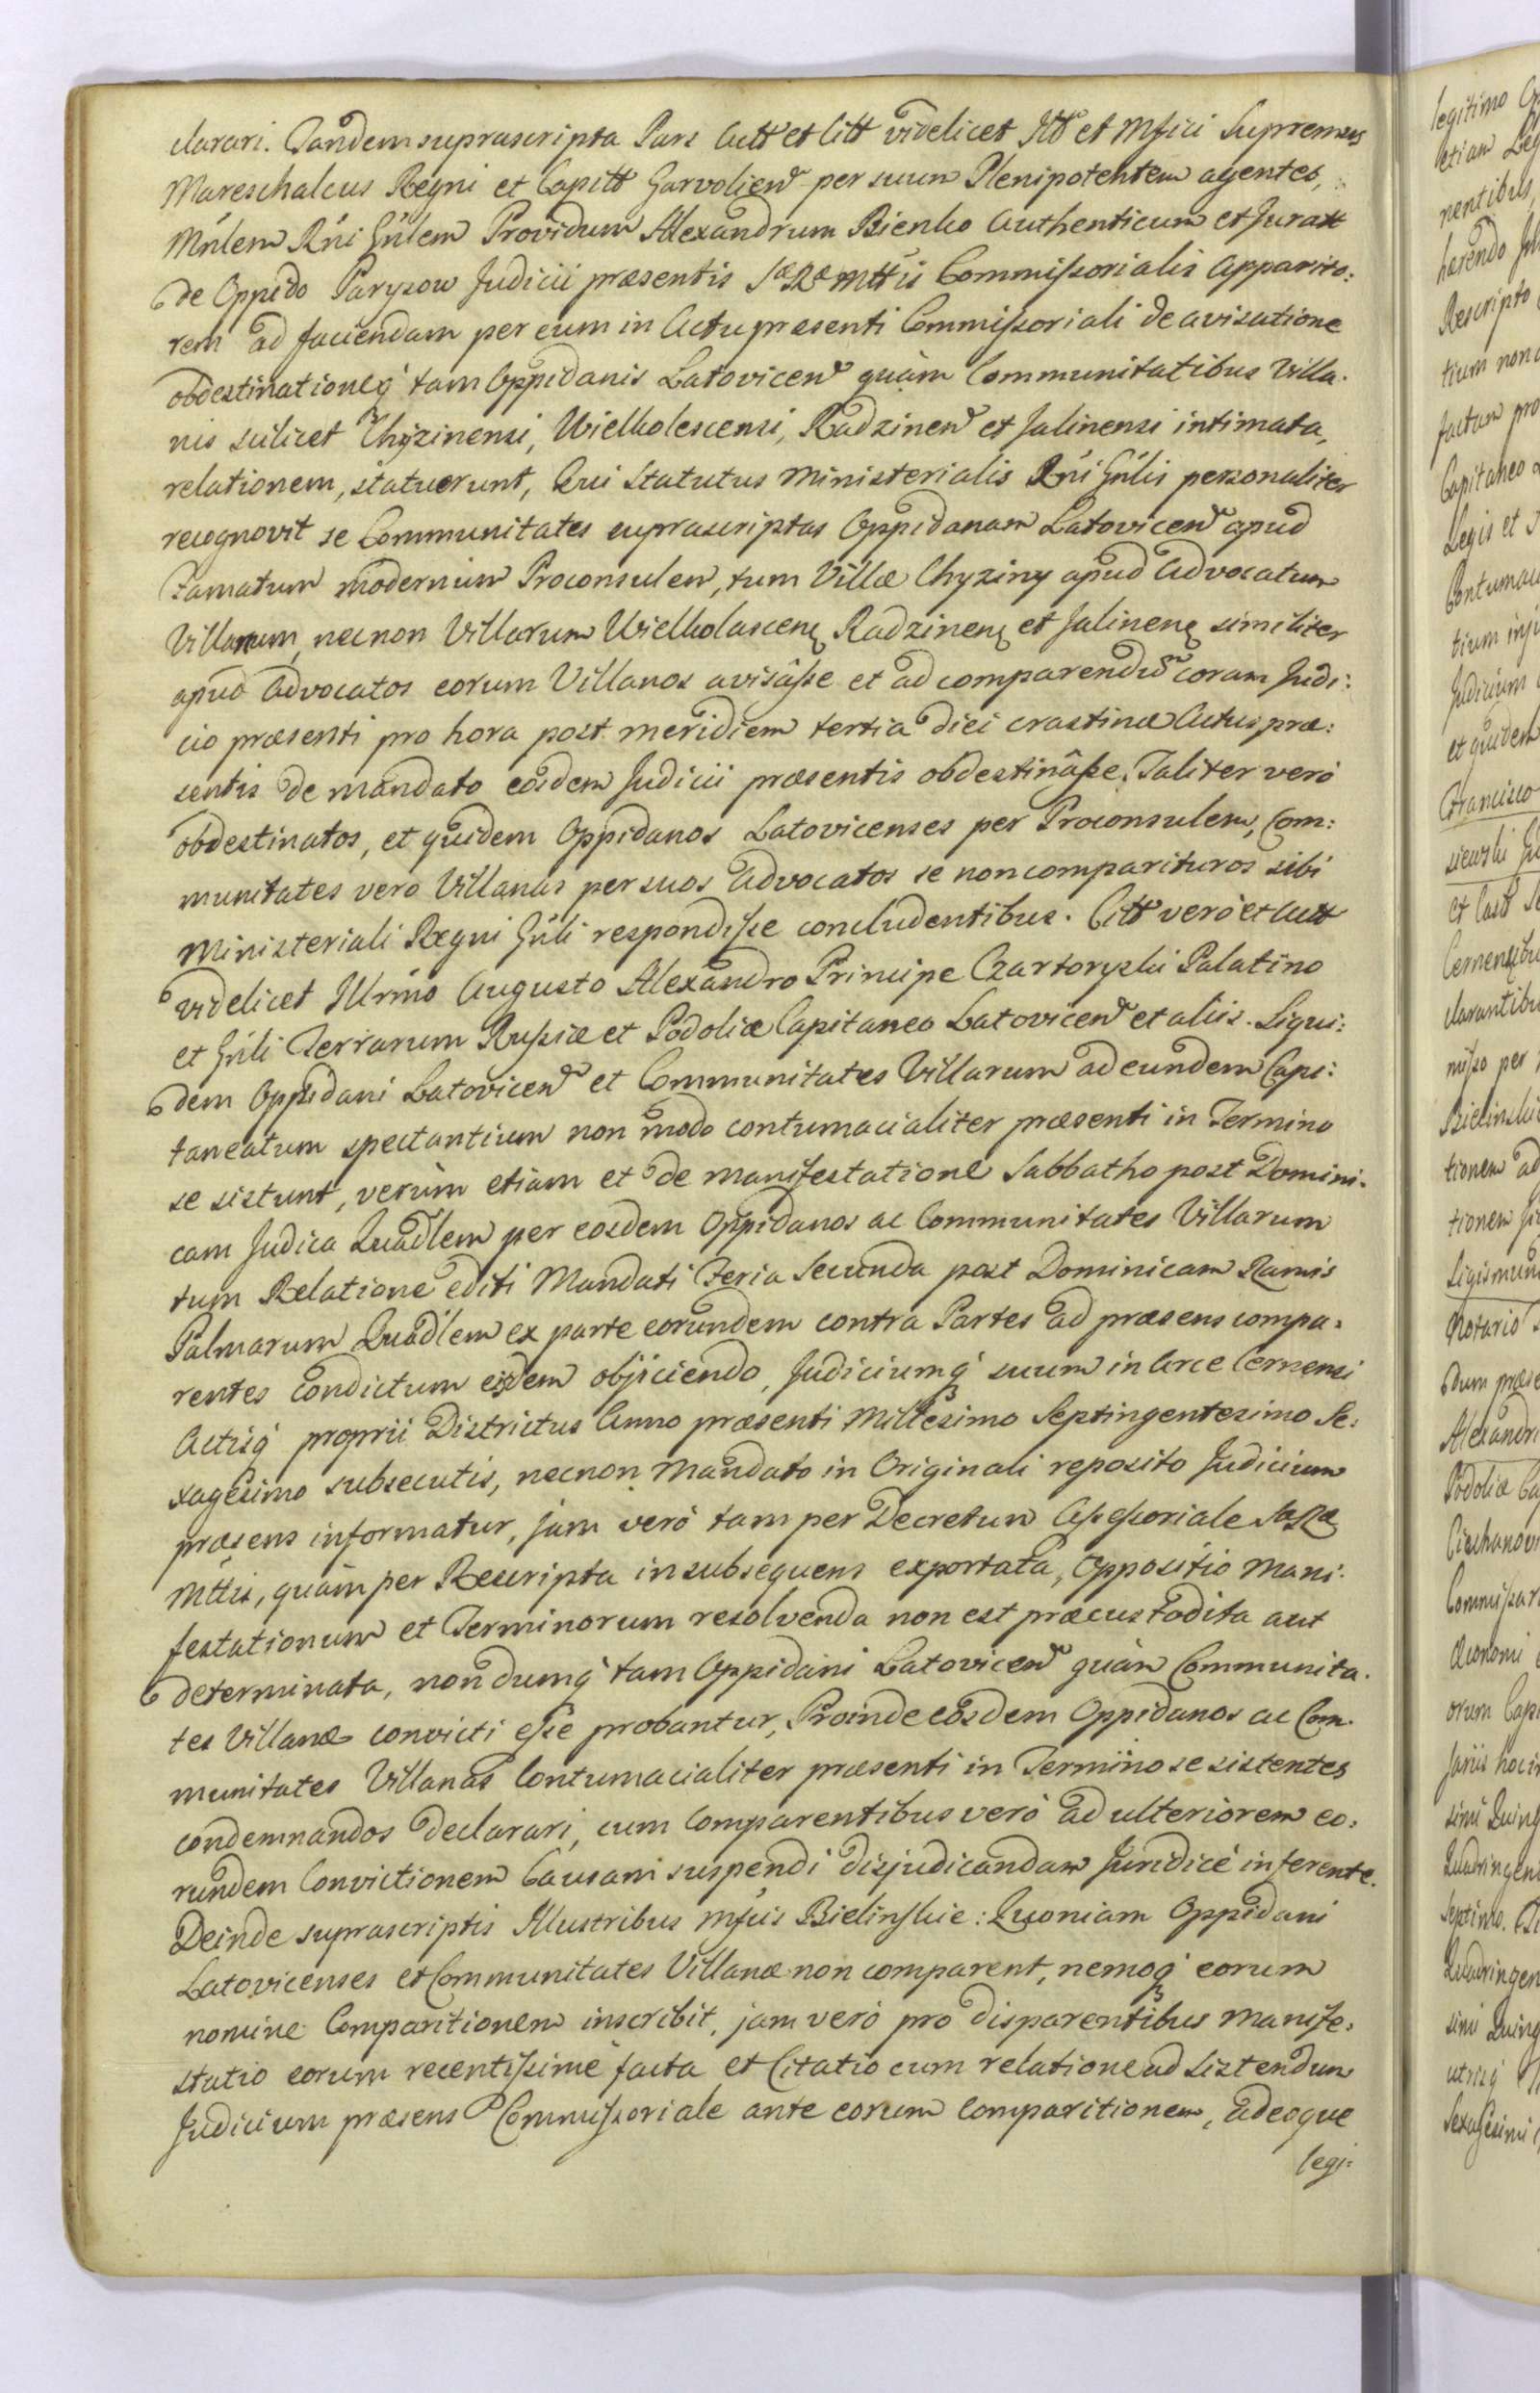 clarari. Tandem suprascripta Pars Actt et Citt videlicet Ittr et Mfici Supremus
Mareschalcus Regni et Capitt Garvolien per suum Plenipotentem agentes,
Mnlem Rni Gnlem Providum Alexandrum Bienko Authenticum et Juratt
de Oppido Parysow Judicii præsentis Sæ Ræ Mttis Commissorialis Apparito:
rem ad faciendam per eum in Actu præsenti Commissoriali de avisatione
obdestinationeq tam Oppidanis Latovicen quàm Communitatibus Villa.
nis scilicet Chyzinensi, Wielkolescensi, Radzinen et Jalinensi intimata,
relationem, statuerunt, Qui Statutus Ministerialis Rni Gnlis personaliter
recognovit se Communitates suprascriptas Oppidanam Latovicen apud
Famatum modernum Proconsulem, tum Villæ Chyziny apud Advocatum
Villanum, necnon Villarum Wielkolascenq Radzinenq et Jalinenq similiter
apud Advocatos eorum Villanos avisâsse et ad comparendũ coram Judi:
cio præsenti pro hora post meridiem tertia diei crastinæ Actus præ:
sentis de mandato eosdem Judicii præsentis obdestinâsse. Taliter verò
obdestinatos, et quidem Oppidanos Latovicenses per Proconsulem, Com:
munitates vero Villanas per suos Advocatos se non comparituros sibi
Ministeriali Regni Gnli respondisse concludentibus. Citt verò et Actt
videlicet Illrmo Augusto Alexandro Principe Czartoryski Palatino
et Gnli Terrarum Russiæ et Podoliæ Capitaneo Latovicen et aliis. Siqui:
dem Oppidani Latovicen et Communitates Villarum ad eundem Capi:
taneatum spectantium non modo contumacialiter præsenti in Termino
se sistunt, verùm etiam et de manifestatione Sabbatho post Domini.
cam Judica Quadlem per eosdem Oppidanos ac Communitates Villarum
tum Relatione editi Mandati Feria Secunda post Dominicam Ramis
Palmarum Quadlem ex parte eorundem contra Partes ad præsens compa.
rentes condictum eisdem objiciendo, Judiciumq suum in Arce Cernensi
Actisq proprii Districtus Anno præsenti Millesimo Septingentesimo Se:
xagesimo subsecutis, necnon Mandato in Originali reposito Judicium
præsens informatur, jam verò tam per Decretum Assessoriale Sæ Ræ
Mttis, quàm per Rescripta in subsequens exportata, Oppositio Mani.
festationum et Terminorum resolvenda non est præcustodita aut
determinata, nondumq tam Oppidani Latovicen quàm Communita.
tes Villanæ convicti esse probantur, Proinde eosdem Oppidanos ac Com.
munitates Villanas Contumacialiter præsenti in Termino se sistentes
condemnandos declarari, cum Comparentibus verò ad ulteriorem eo:
rundem Convictionem Causam suspendi disjudicandam Juridicè inferente.
Deinde suprascriptis Illustribus Mfcis Bielinskie: Quoniam Oppidani
Latovicenses et Communitates Villanæ non comparent, nemoq eorum
nomine Comparitionem inscribit, jam verò pro disparentibus Manife.
statio eorum recentissimè facta et Citatio cum relatione ad sistendum
Judicium præsens Commissoriale ante eorum Comparitionem, adeoque
legi: